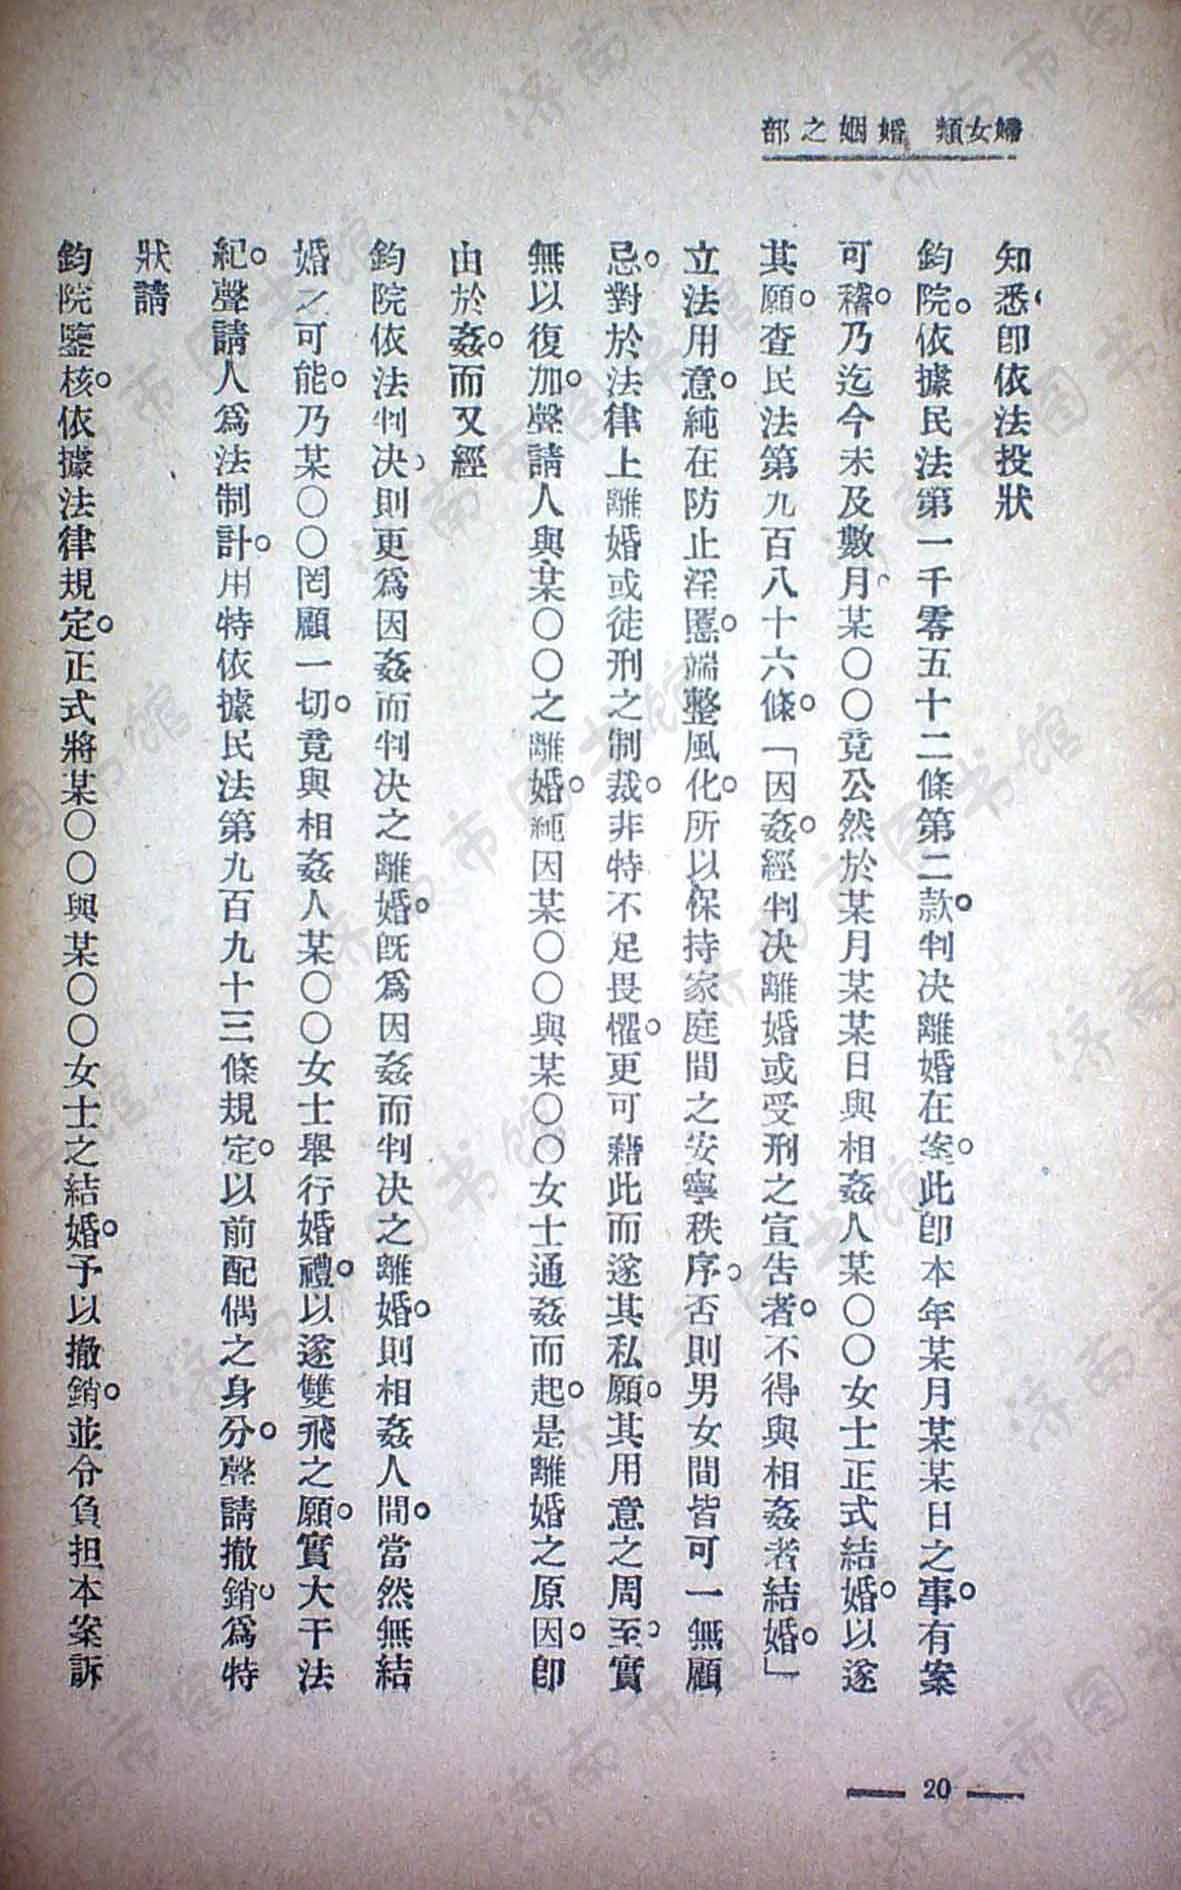 婦女類　婚姻之部
知悉卽依法投狀
鈞院。依據民法第一千零五十二條第二款。判決離婚在案。此卽本年某月某某日之事。有案
可稽。乃迄今未及數月、某〇〇竟公然於某月某某日與相姦人某〇〇女士正式結婚。以遂
其願。查民法第九百八十六條。「因姦。經判決離婚或受刑之宣吿者。不得與相姦者結婚。」
立法用意。純在防止淫慝。端整風化。所以保持家庭間之安寧秩序。否則男女間皆可一無顧
忌。對於法律上離婚或徒刑之制裁。非特不足畏懼。更可藉此而遂其私願。其用意之周至。實
無以復加。聲請人與某〇〇之離婚。純因某〇〇與某〇〇女士通姦而起。是離婚之原因。卽
由於姦。而又經
鈞院依法判決。則更爲因姦而判決之離婚。旣爲因姦而判決之離婚。則相姦人間。當然無結
婚之可能。乃某〇〇罔顧一切。竟與相姦人某〇〇女士舉行婚禮。以遂雙飛之願。實大干法
紀。聲請人爲法制計。用特依據民法第九百九十三條規定。以前配偶之身分。聲請撤銷。爲特
狀請
鈞院鑒核。依據法律規定。正式將某〇〇與某〇〇女士之結婚。予以撤銷。並令負担本案訴
20
济南市图书馆